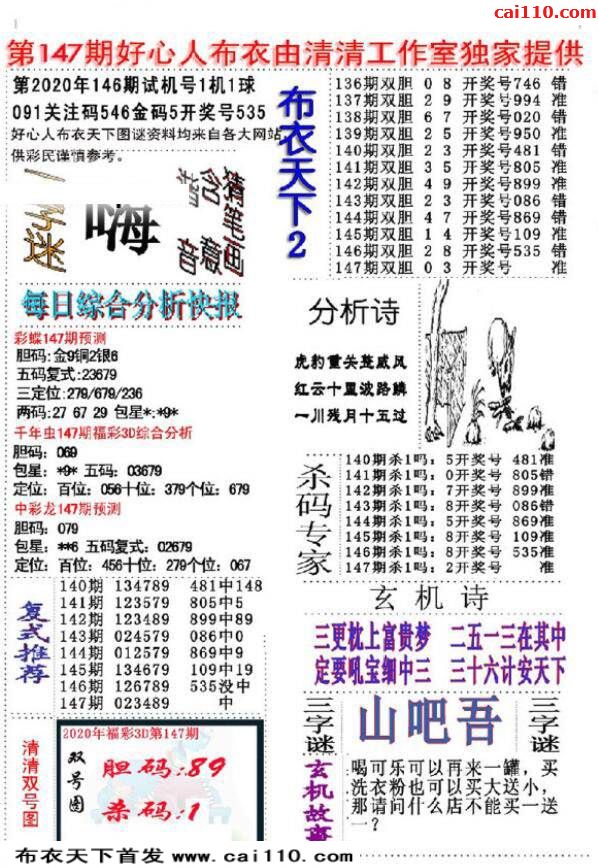 cai110.com
第147期好心人布衣由清清工作室独家提供
第2020年146期试机号1机1球
091关注码546金码5开奖号535
好心人布衣天下图谜资料均来自各大网站,
供彩民谨慎参考。
字迷
嗨
含意
音
猜笔画
每日综合分析快报
彩蝶147期预测
胆码:金9铜2银6
五码复式:23679
三定位:279/679/236
两码:27 67 29 包星*:*9*
千年虫147期福彩3D综合分析
胆码: 069
包星: *9* 五码: 03679
定位: 百位: 056十位: 379个位: 679
中彩龙147期预测
胆码: 079
包星: **6 五码复式: 02679
定位: 百位: 456十位: 279个位: 067
复式推荐
140期 134789 481中148
141期 123579 805中5
142期 123489 899中89
143期 024579 086中0
144期 012579 869中9
145期 134679 109中19
146期 126789 535没中
147期 023489 中
清清双号图
2020年福彩3D第147期
双号图
胆码:89
杀码:1
布衣天下2
136期双胆 0 8 开奖号746 错
137期双胆 2 9 开奖号994 准
138期双胆 6 7 开奖号020 错
139期双胆 2 5 开奖号950 准
140期双胆 2 3 开奖号481 错
141期双胆 3 5 开奖号805 准
142期双胆 4 9 开奖号899 准
143期双胆 2 3 开奖号086 错
144期双胆 4 7 开奖号869 错
145期双胆 1 4 开奖号109 准
146期双胆 2 8 开奖号535 错
147期双胆 0 3 开奖号 准
分析诗
虎豹重关莲威风
红云十里波路麟
一川残月十五过
杀码专家
140期杀1吗: 5开奖号 481准
141期杀1吗: 0开奖号 805错
142期杀1吗: 7开奖号 899准
143期杀1吗: 8开奖号 086错
144期杀1吗: 5开奖号 869准
145期杀1吗: 8开奖号 109准
146期杀1吗: 8开奖号 535准
147期杀1吗: 2开奖号 准
玄机诗
三更枕上富贵梦 二五一三在其中
定要吼宝细中三 三十六计安天下
三字谜
山吧吾
三字谜
玄机故事
喝可乐可以再来一罐, 买
洗衣粉也可以买大送小,
那请问什么店不能买一送
一?
布衣天下首发 www.cai110.com